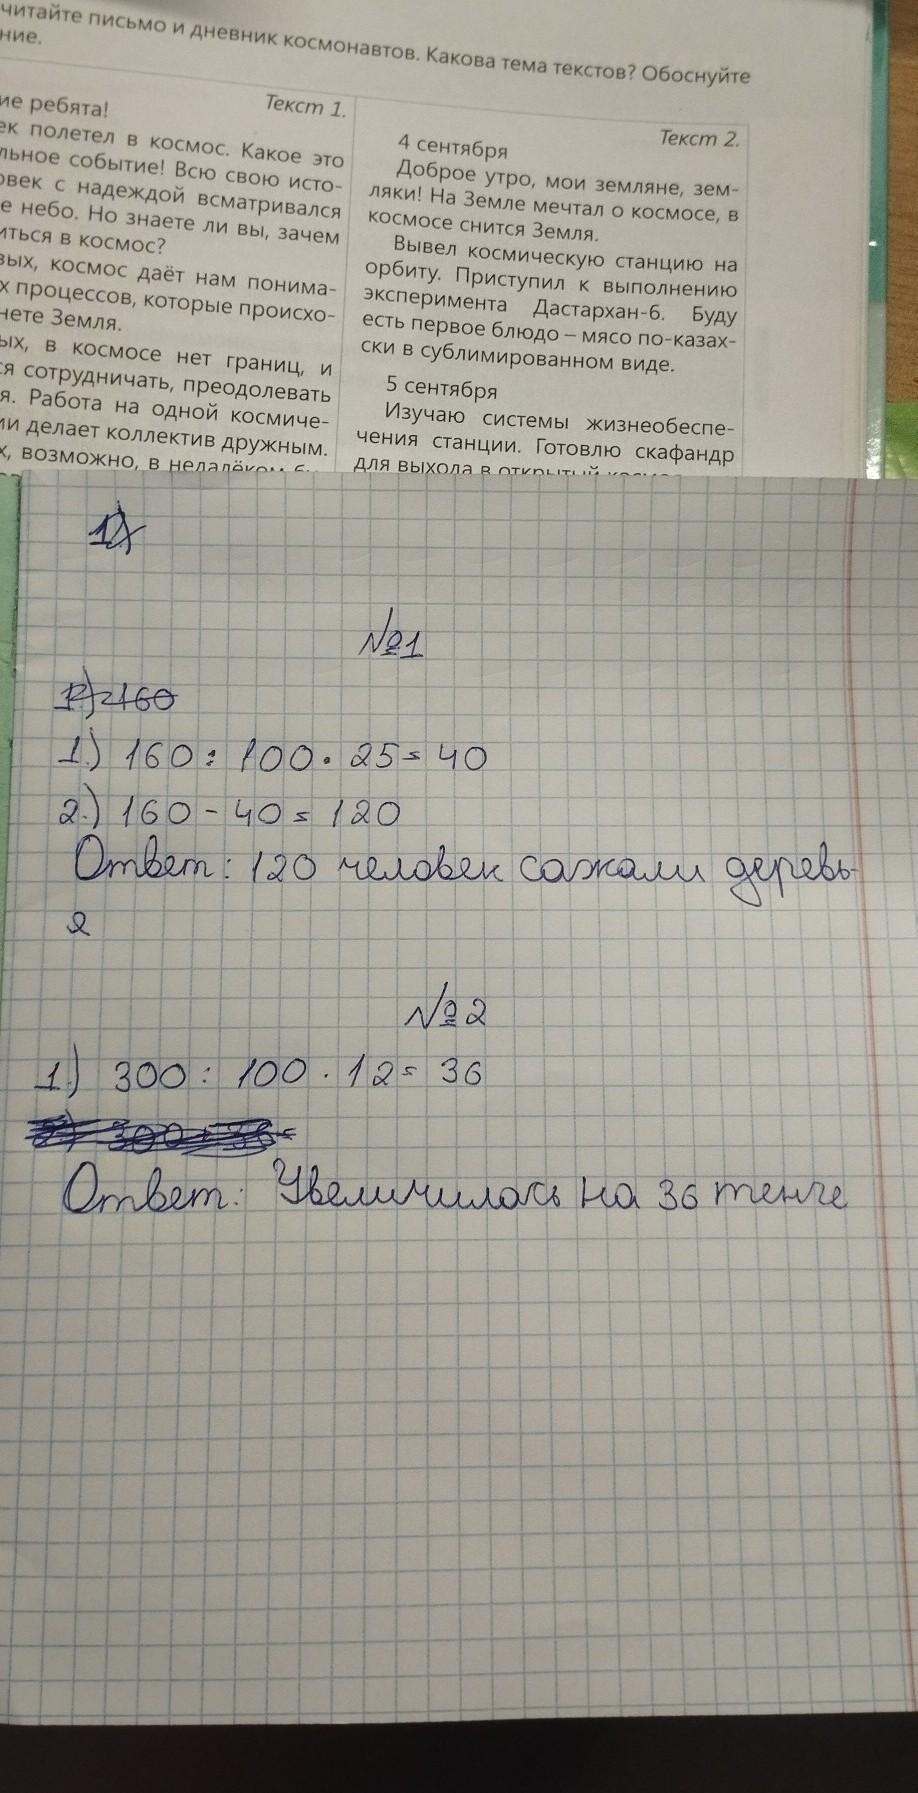 читайте письмо и дневник космонавтов. Какова тема текстов? Обоснуйте
ние.
Текст 1.
ие ребята!
ек полетел в космос. Какое это
льное событие! Всю свою исто-
овек с надеждой всматривался
е небо. Но знаете ли вы, зачем
иться в космос?
вых, космос даёт нам понима-
х процессов, которые происхо-
нете Земля.
ых, в космосе нет границ, и
ся сотрудничать, преодолевать
я. Работа на одной космиче-
ии делает коллектив дружным.
х, возможно, в недалёком бу-
Текст 2.
4 сентября
Доброе утро, мои земляне, зем-
ляки! На Земле мечтал о космосе, в
космосе снится Земля.
Вывел космическую станцию на
орбиту. Приступил к выполнению
эксперимента Дастархан-6. Буду
есть первое блюдо – мясо по-казах-
ски в сублимированном виде.
5 сентября
Изучаю системы жизнеобеспе-
чения станции. Готовлю скафандр
для выхода в открытый
№1
1.) 160 : 100 · 25 = 40
2.) 160 - 40 = 120
Ответ: 120 человек сажали деревь-
я
№2
1.) 300 : 100 · 12 = 36
Ответ: Увеличилась на 36 тенге